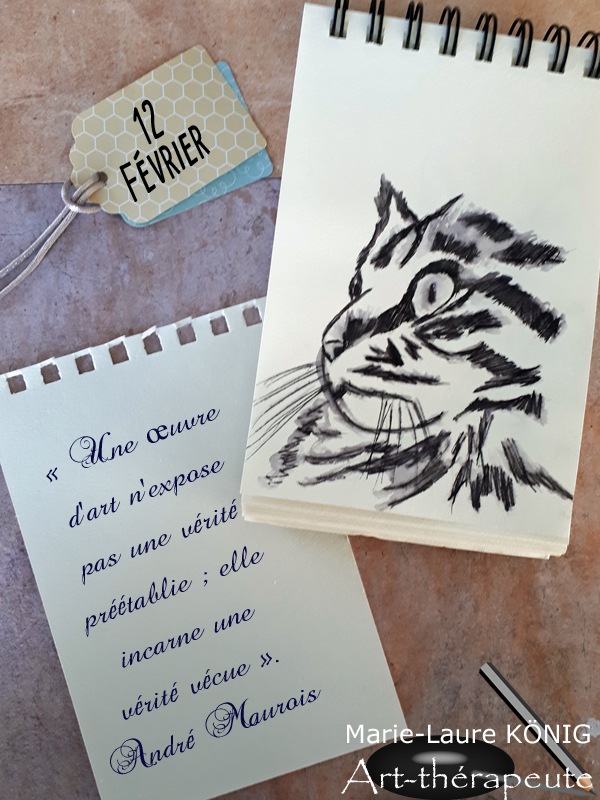 12
FÉVRIER
« Une œuvre
d'art n'expose
pas une vérité
préétablie ; elle
incarne une
vérité vécue ».
André Maurois
Marie-Laure KÖNIG
Art-thérapeute